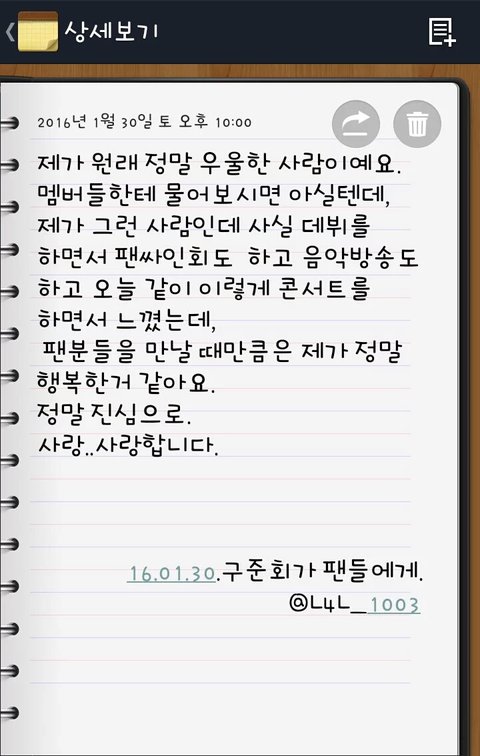 상세보기
2016년 1월 30일 토 오후 10:00
제가 원래 정말 우울한 사람이예요.
멤버들한테 물어보시면 아실텐데,
제가 그런 사람인데 사실 데뷔를
하면서 팬싸인회도 하고 음악방송도
하고 오늘 같이 이렇게 콘서트를
하면서 느꼈는데,
팬분들을 만날 때만큼은 제가 정말
행복한거 같아요.
정말 진심으로.
사랑..사랑합니다.
16.01.30.구준회가 팬들에게.
@L4L_1003